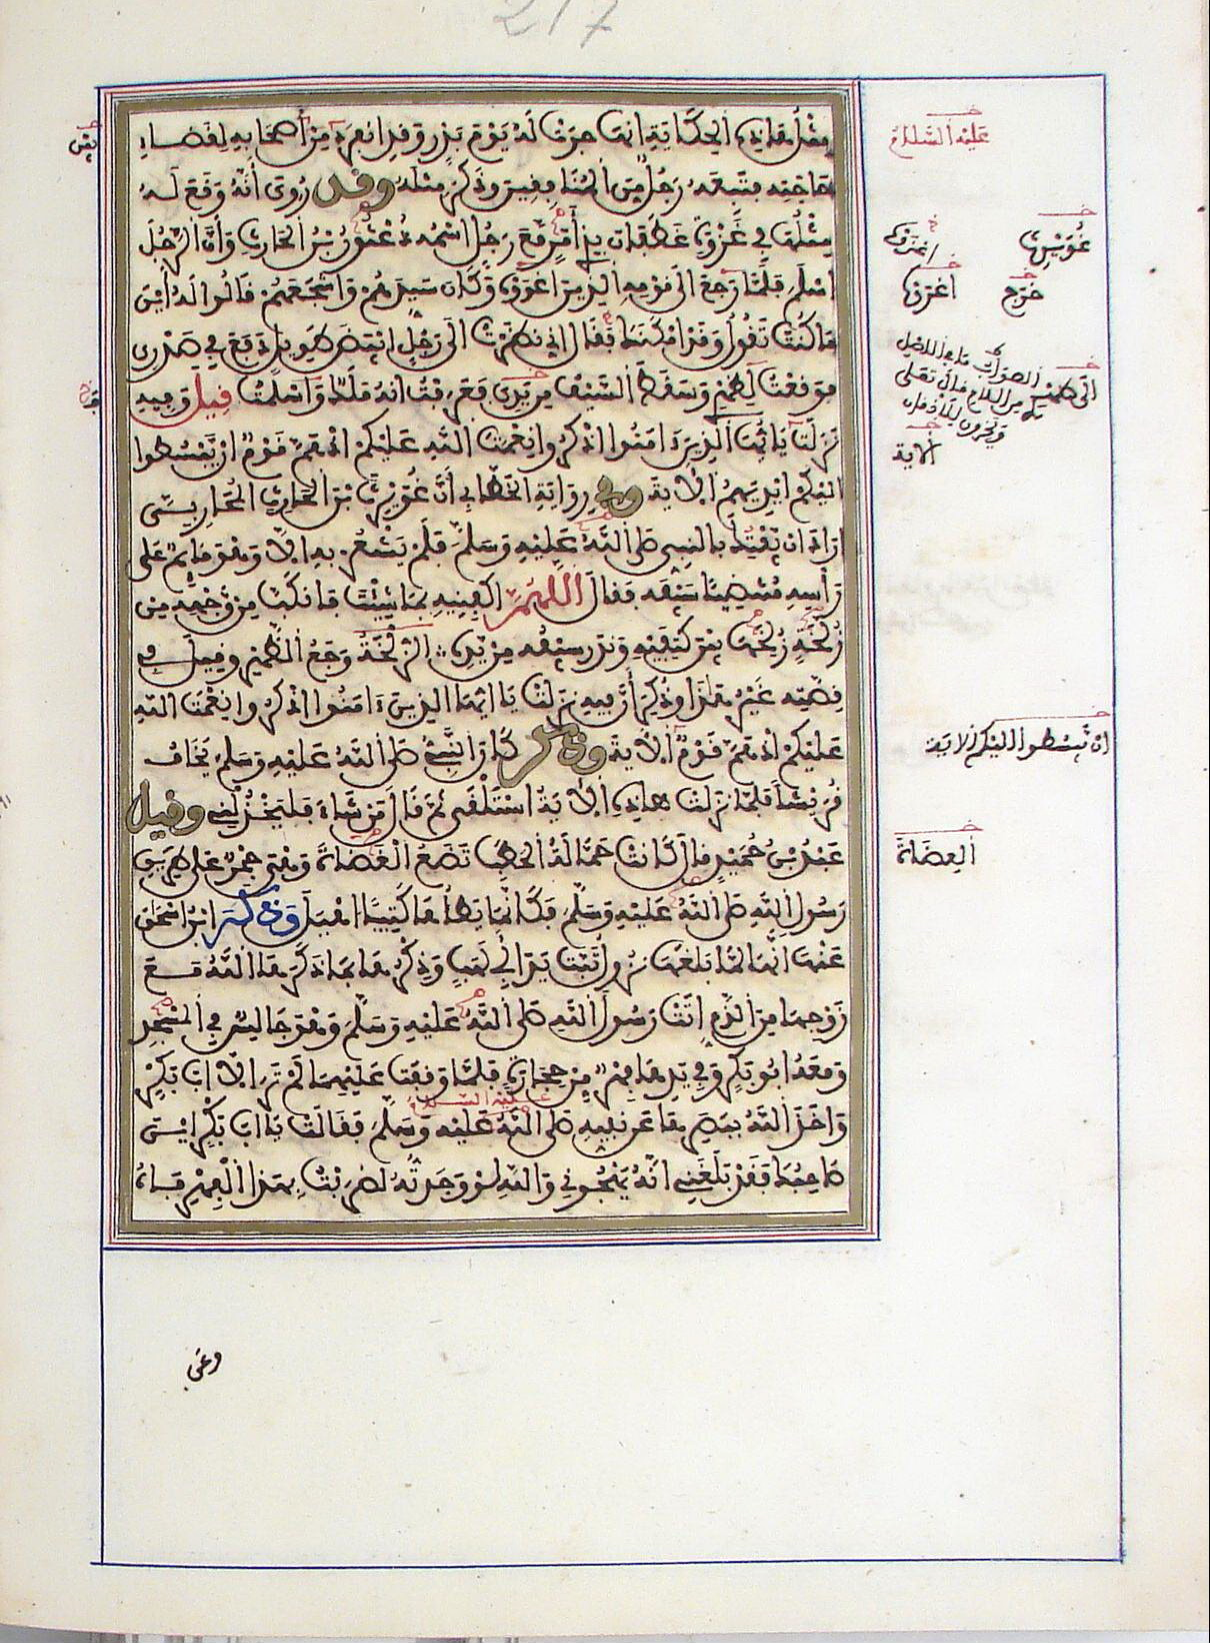 217
مثل هاذه الحكاية انها جرت له يوم بدر وقد انفرد من أصحابه لقضاء
حاجته فتبعه رجل من المنافقين وذكر مثله وقد روى أنه وقع له
مثلها في غزوة غطفان بذي أمر مع رجل اسمه دعثور بن الحارث وأن الرجل
اسلم فلما رجع الى قومه الذين اغروه وكان سيدهم وأشجعهم قالوا له أين
ما كنت تقول وقد امكنك فقال اني نظرت الى رجل ابيض طويل دفع في صدري
فوقعت لظهري وسقط السيف من يدي فعرفت انه ملك واسلمت قيل وفيه
نزلت يا أيها الذين ءامنوا اذكروا نعمت الله عليكم اذ هم قوم ان يبسطوا
اليكم ايديهم الاية وفي رواية الخطابي أن غويرث بن الحارث المحاربي
اراد ان يفتك بالنبي صلى الله عليه وسلم فلم يشعر به الا وهو قايم على
رأسه منتضيا سيفه فقال اللهم اكفنيه بما شئت فانكب من وجهه من
زلخة زلخها بين كتفيه وندر سيفه من يده الزلخة وجع الظهر وقيل في
قصته غير هاذا وذكر أن فيه نزلت يا أيها الذين ءامنوا اذكروا نعمت الله
عليكم اذ هم قوم الاية وقيل كان النبي صلى الله عليه وسلم يخاف
قريشا فلما نزلت هاذه الاية استلقى ثم قال من شاء فليخذلني وقيل
عبد بن حميد قال كانت حمالة الحطب تضع الغضاة وهي جمر على طريق
رسول الله صلى الله عليه وسلم فكأنما يطأها كثيبا اهيل وذكر ابن اسحاق
عنها انها لما بلغها نزول تبت يدا أبي لهب وذكرها بما ذكرها الله مع
زوجها من الذم اتت رسول الله صلى الله عليه وسلم وهو جالس في المسجد
ومعه ابو بكر وفي يدها فهر من حجارة فلما وقفت عليهما لم تر الا ابا بكر
عليه السلام
واخذ الله ببصرها عن نبيه صلى الله عليه وسلم فقالت يا ابا بكر اين
صاحبك فقد بلغني انه يهجوني والله لو وجدته لضربت بهذا الفهر فاه
عليه السلام
غويرث
خرج
اغرة
الاية
ان يبسطوا اليكم الاية
العضاة
وعن